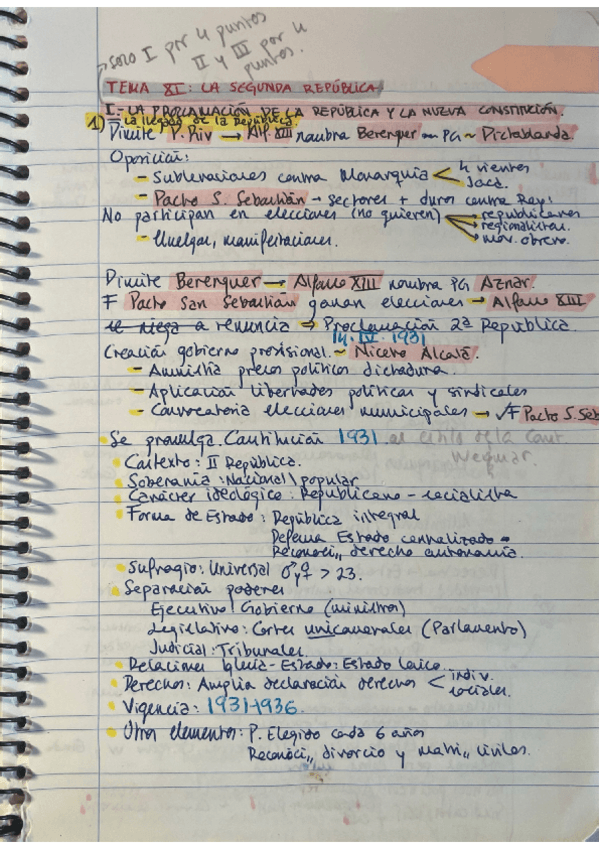 → solo I por 4 puntos
II y III por 4
puntos.
TEMA XI: LA SEGUNDA REPÚBLICA
I.- LA PROCLAMACIÓN DE LA REPÚBLICA Y LA NUEVA CONSTITUCIÓN.
1) La llegada de la República.
Dimite P. Riv → Alf. XIII nombra Berenguer — PG ~ Dictablanda.
Oposición:
- Sublevaciones contra Monarquía < 4 vientos
Jaca.
- Pacto S. Sebastián → sectores + duros contra Rey:
No participan en elecciones (no quieren) republicanos
regionalistas.
mov. obrero.
- Huelgas, manifestaciones.
Dimite Berenguer → Alfonso XIII nombra PG Aznar.
F Pacto San Sebastián ganan elecciones → Alfonso XIII
le niega a renuncia ⇒ Proclamación 2ª República.
14. IV. 1931
Creación gobierno provisional. ~ Niceto Alcalá.
- Amnistía presos políticos dictadura.
- Aplicación libertades políticas y sindicales
- Convocatoria elecciones municipales → √F Pacto S. Seb
Se promulga Constitución 1931 al estilo de la Const
Weimar.
Contexto: II República.
Soberanía: Nacional \ popular
Carácter ideológico: Republicano - socialista
Forma de Estado: República integral
Defensa Estado centralizado
Reconoci,, derecho autonomía.
Sufragio: Universal ♂ y ♀ > 23.
Separación poderes
Ejecutivo: Gobierno (ministros)
Legislativo: Cortes unicamerales (Parlamento)
Judicial: Tribunales.
Relaciones Iglesia - Estado: Estado laico.
Derechos: Amplia declaración derechos < indiv.
sociales.
Vigencia: 1931-1936.
Otros elementos: P. Elegido cada 6 años
Reconoci,, divorcio y matri,, civiles.